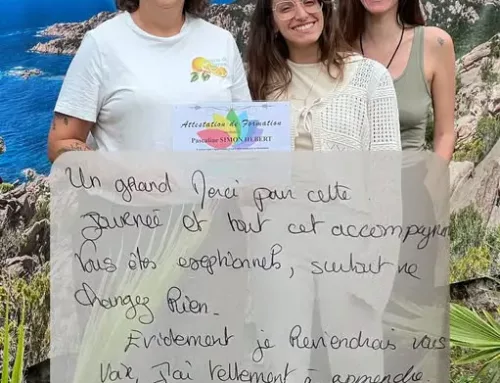 Attestation de Formation
Pascaline SIMON HEBERT
Un grand Merci pour cette
journée et tout cet accompagnem
Vous êtes exeptionnels, surtout ne
changez Rien.
Evidement je Reviendrais vous
Voir, J'ai tellement à apprendre